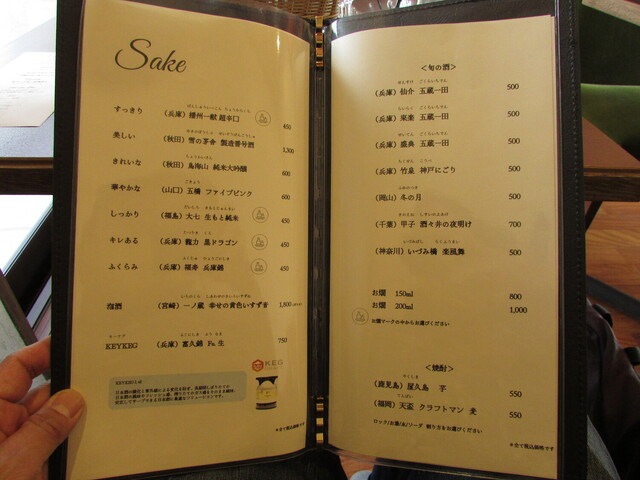 Sake
すっきり （兵庫）播州一献 超辛口 450
美しい （秋田）雪の茅舎 製造番号酒 1,300
きれいな （秋田）鳥海山 純米大吟醸 600
華やかな （山口）五橋 ファイブピンク 600
しっかり （福島）大七 生もと純米 450
キレある （兵庫）龍力 黒ドラゴン 450
ふくらみ （兵庫）福寿 兵庫錦 450
泡酒 （宮崎）一ノ蔵 幸せの黄色いすず音 1,800
KEYKEG （兵庫）富久錦 Fu. 生 750
KEG
KEYKEGとは
＊全て税込価格です
＜旬の酒＞
（兵庫）仙介 五蔵一田 500
（兵庫）來楽 五蔵一田 500
（兵庫）盛典 五蔵一田 500
（兵庫）竹泉 神戸にごり 500
（岡山）冬の月 500
（千葉）甲子 酒々井の夜明け 700
（神奈川）いづみ橋 楽風舞 500
お燗 150ml 800
お燗 200ml 1,000
お燗マークの中からお選びください
＜焼酎＞
（鹿児島）屋久島 芋 550
（福岡）天盃 クラフトマン 麦 550
ロック/お湯/水/ソーダ 割り方をお選びください
＊全て税込価格です